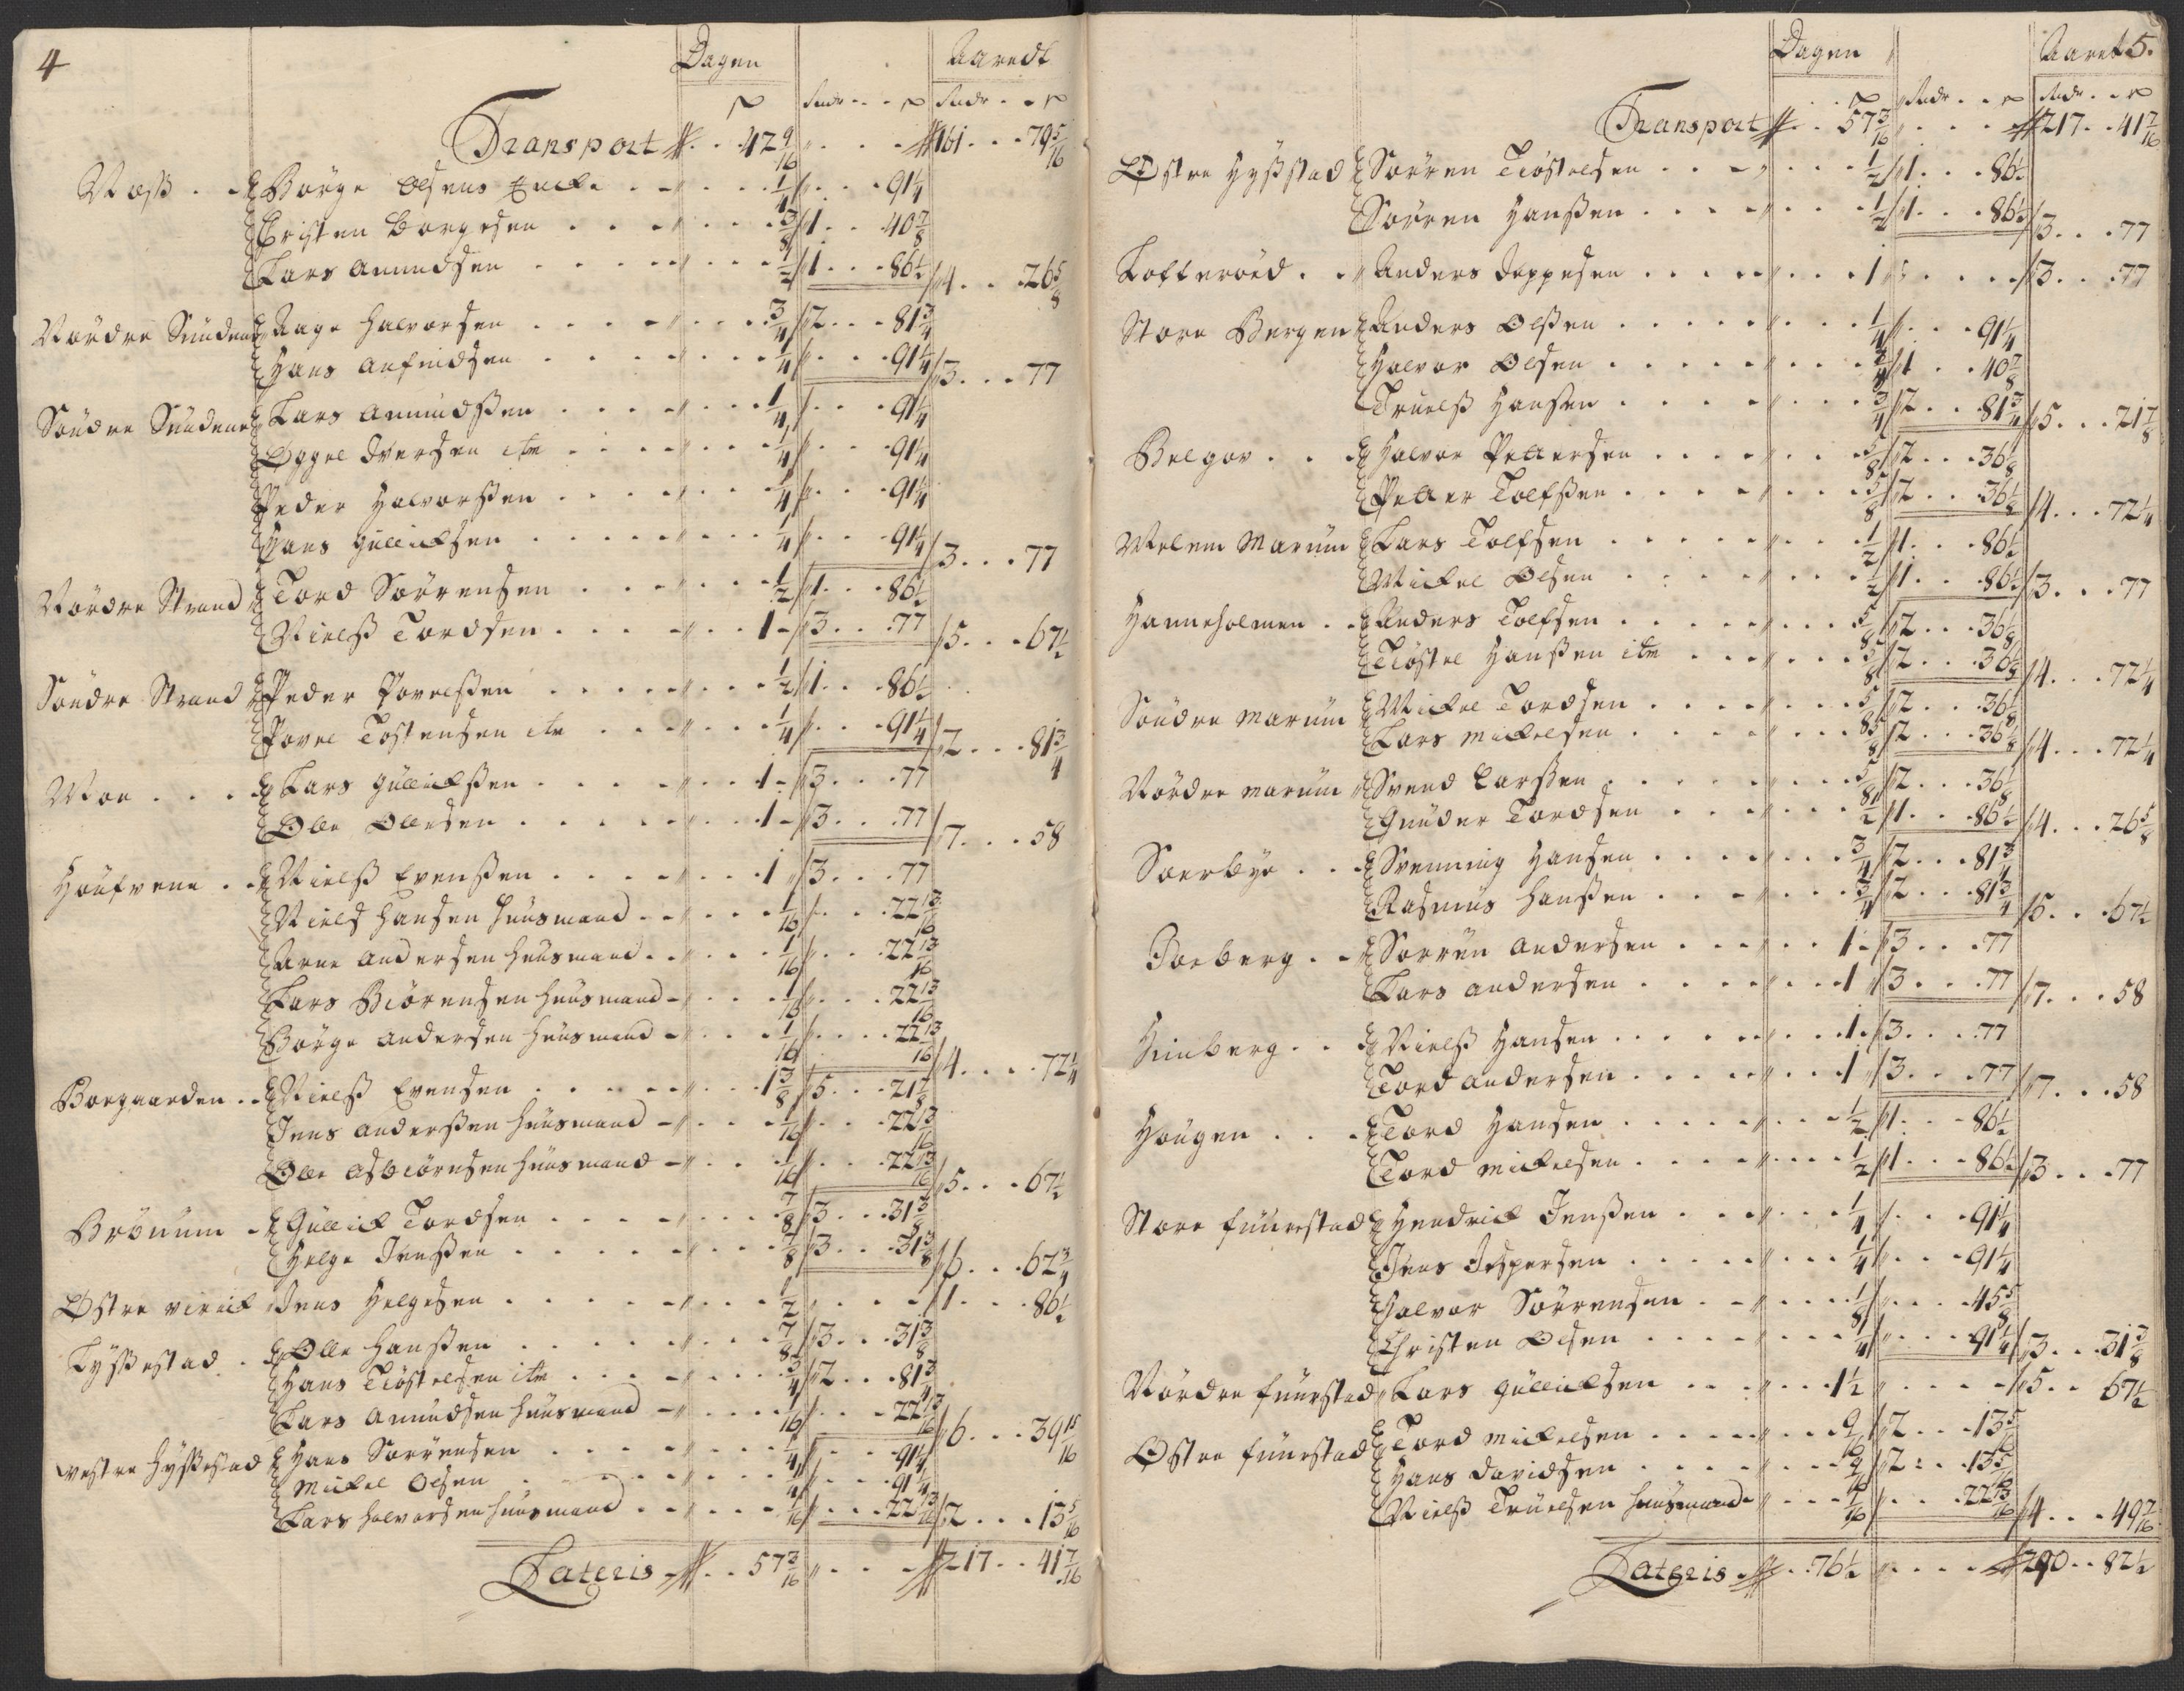 4
Dagen Aaredt
℔ Rdr . . ℔ Rdr . . ℔
Transport . . 42 9/16 . . . 161 . . . 79 5/16
Børge Olsens Encke . . . 1/4 . . . 91 1/4
Christen Børgesen . . . 3/8 1 . . . 40 7/8
Lars Amundsen . . . 1/2 1 . . . 86 1/2 4 . . . 26 5/8
Nordre Sundene Aage Halvorsen . . . 3/4 2 . . . 81 3/4
Hans Anfindsen . . . 1/4 . . . 91 1/4 3 . . . 77
Søndre Sundene Lars Amundsen . . . 1/4 . . . 91 1/4
Iversen itm . . . 1/4 . . . 91 1/4
Peder Halvorsen . . . 1/4 . . . 91 1/4
Hans Gullicksen . . . 1/4 . . . 91 1/4 3 . . . 77
Nordre Strand Tord Sørrensen . . . 1/2 1 . . . 86 1/2
Nielß Tordsen . . . 1 3 . . . 77 5 . . . 67 1/2
Søndre Strand Peder Povelsen . . . 1/2 1 . . . 86 1/2
Povel Tostensen itm . . . 1/4 . . . 91 1/4 2 . . . 81 3/4
Moe . . . Lars Gullicksen . . . 1 3 . . . 77
Olle Ollesen . . . 1 3 . . . 77 7 . . . 58
Nielß Evensen . . . 1 3 . . . 77
Niels Hansen huusmand . . . 1/16 . . . 22 13/16
Arne Andersen huusmand . . . 1/16 . . . 22 13/16
Lars Biørensen huusmand . . . 1/16 . . . 22 13/16
Børge Andersen huusmand . . . 1/16 . . . 22 13/16 4 . . . 72 1/4
Borgaarden . . Nielß Evensen . . . 1 3/8 5 . . . 21 7/8
Jens Andersen huusmand . . . 1/16 . . . 22 13/16
Olle Asbiørnsen huusmand . . . 1/16 . . . 22 13/16 5 . . . 67 1/2
Brønum Gullick Tordsen . . . 7/8 3 . . . 31 3/8
Helge Jensen . . . 7/8 3 . . . 31 3/8 6 . . . 62 3/4
Østre Virick Jens Helgesen . . . 1/2 . . . 1 . . . 86 1/2
Olle Hansen . . . 7/8 3 . . . 31 3/8
Hans Tiøstelsen itm . . . 3/4 2 . . . 81 3/4
Lars Amundsen huusmand . . . 1/16 . . . 22 13/16 6 . . . 39 15/16
Vestre Hyßestad Hans Sørrensen . . . 1/4 . . . 91 1/4
Mickel Olsen . . . 1/4 . . . 91 1/4
Lars Halvorsen huusmand . . . 1/16 . . . 22 13/16 2 . . . 13 5/16
Lateris . . 57 3/16 . . . 217 . . 41 7/16
Dagen Aaret 5.
℔ Rdr . . ℔ Rdr . . ℔
Transport . . 57 3/16 . . . 217 . . 41 7/16
Østre Hyßstad Sørren Tiøstelsen . . . 1/2 1 . . . 86 1/2
Sørren Hansen . . . 1/2 1 . . . 86 1/2 3 . . . 77
Lofterød . . Anders Jeppesen . . . 1 . . . 3 . . . 77
Store Bergen Anders Olsen . . . 1/4 . . . 91 1/4
Halvor Olsen . . . 3/8 1 . . . 40 7/8
Truelß Hansen . . . 3/4 2 . . . 81 3/4 5 . . . 21 7/8
Belgov . . . Halvor Pettersen . . . 5/8 2 . . . 36 1/8
Petter Tolfsen . . . 5/8 2 . . . 36 1/8 4 . . . 72 1/4
Melem Marum Lars Tolfsen . . . 1/2 1 . . . 86 1/2
Mickel Olsen . . . 1/2 1 . . . 86 1/2 3 . . . 77
Hanneholmen . . Anders Tolfsen . . . 5/8 2 . . . 36 1/8
Tiøstel Hansen itm . . . 5/8 2 . . . 36 1/8 4 . . . 72 1/4
Søndre Marum Mickel Tordsen . . . 5/8 2 . . . 36 1/8
Lars Mickelsen . . . 5/8 2 . . . 36 1/8 4 . . . 72 1/4
Nordre Marum Svend Larsen . . . 5/8 2 . . . 36 1/8
Gunder Tordsen . . . 1/2 1 . . . 86 1/2 4 . . . 26 5/8
Soerbye . . . Svenning Hansen . . . 3/4 2 . . . 81 3/4
Rasmus Hansen . . . 3/4 2 . . . 81 3/4 5 . . . 67 1/2
Joeberg . . Sørren Andersen . . . 1 3 . . . 77
Lars Andersen . . . 1 3 . . . 77 7 . . . 58
Himberg . . Nielß Hansen . . . 1 3 . . . 77
Tord Andersen . . . 1 3 . . . 77 7 . . . 58
Hougen . . . Tord Hansen . . . 1/2 1 . . . 86 1/2
Tord Mickelsen . . . 1/2 1 . . . 86 1/2 3 . . . 77
Store Fuurestad Hendrick Jensen . . . 1/4 . . . 91 1/4
Jens Jespersen . . . 1/4 . . . 91 1/4
Halvor Sørrensen . . . 1/8 . . . 45 5/8
Christen Olsen . . . 1/4 . . . 91 1/4 3 . . . 31 3/8
Nordre Fuurstad Lars Gullicksen . . . 1 1/2 . . . 5 . . 67 1/2
Østre Fuurstad Tord Mickelsen . . . 9/16 2 . . . 13 5/16
Hans Davidsen . . . 9/16 2 . . . 13 5/16
Nielß Truelsen huusmand . . . 1/16 . . . 22 13/16 4 . . . 49 7/16
Lateris . . 76 1/2 . . . 290 . . 82 1/2